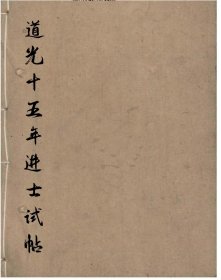 道光十五年进士试帖